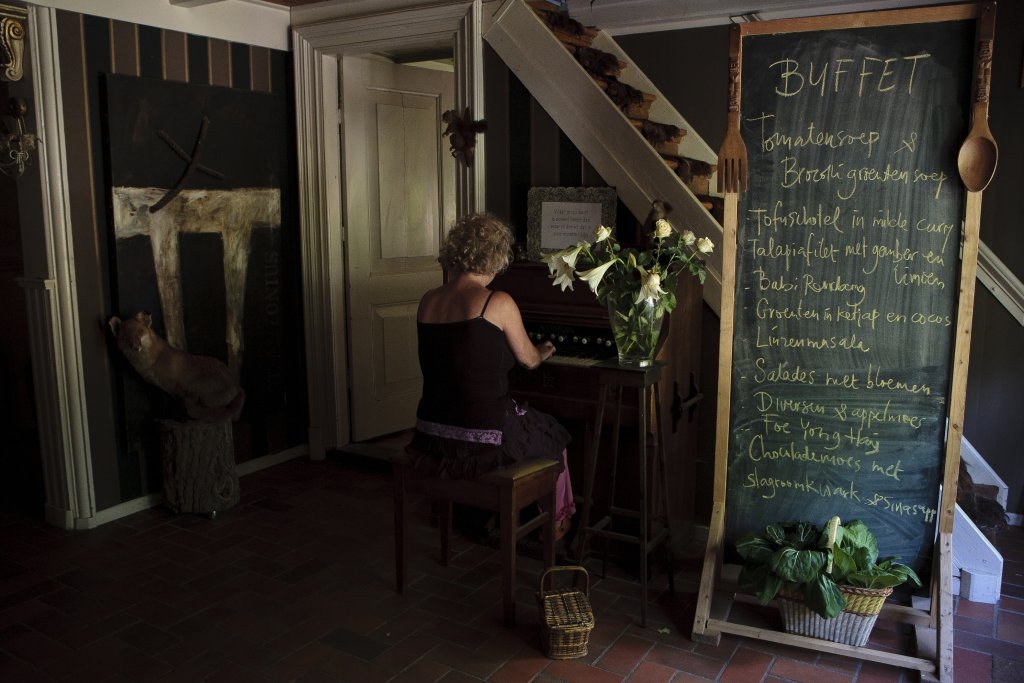 BUFFET
Tomatensoep &
Brocolli groenten soep
Tofuschotel in milde curry
Talapiafilet met gember en
limoen
- Babi Rendang
- Groenten in ketjap en cocos
- Linzenmasala
- Salades met bloemen
- Diversen & appelmoes
Foe Yong Hay
Chocolademoes met
slagroomkwark & sinasapp